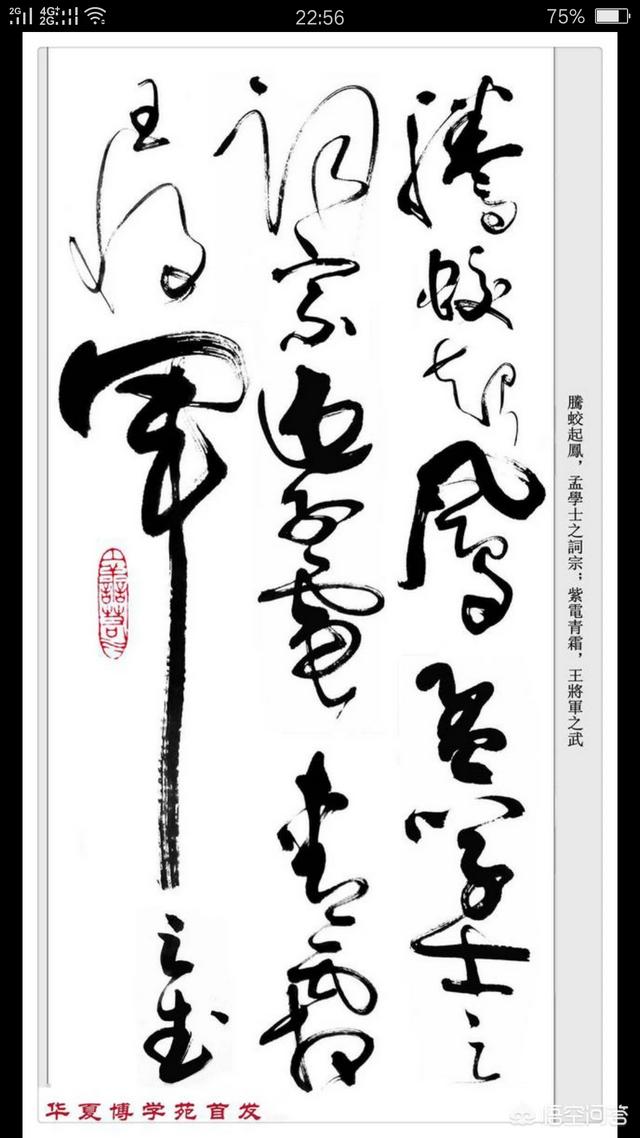 2G 4G+ 2G 22:56 75%
騰蛟起鳳孟學士之
詞宗紫電青霜
王將軍之武
騰蛟起鳳，孟學士之詞宗；紫電青霜，王將軍之武
华夏博学苑首发
悟空问答